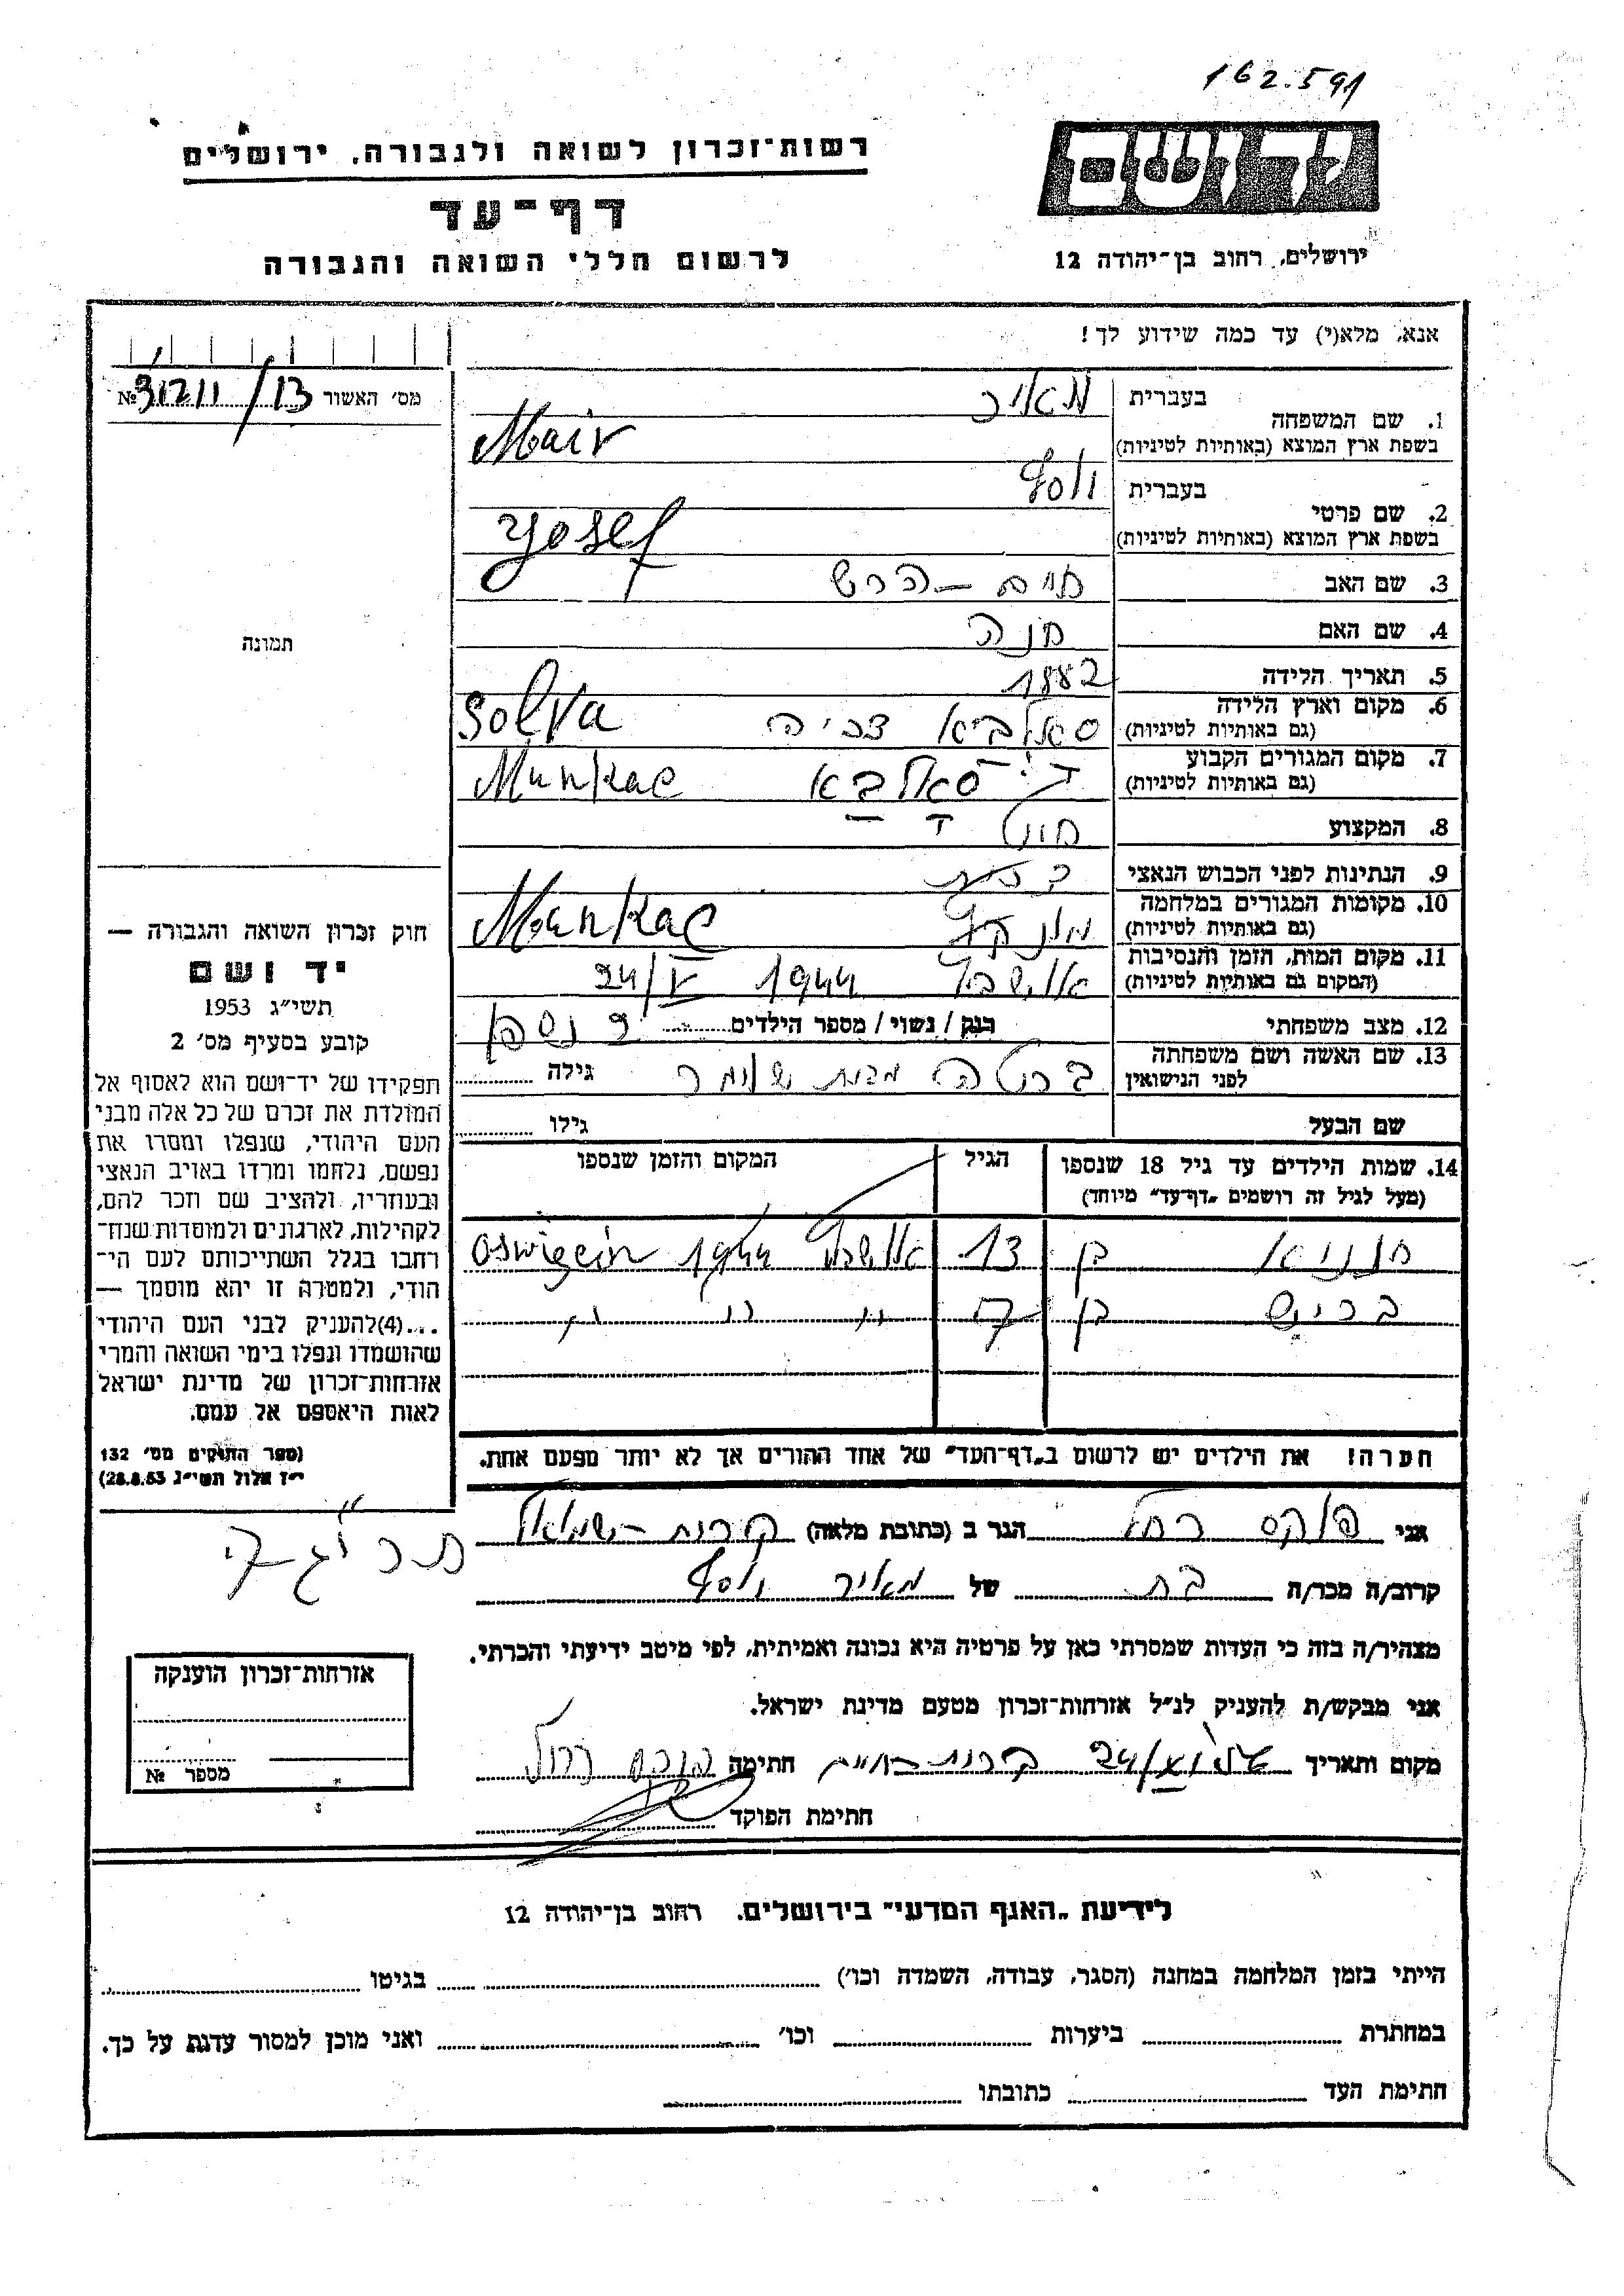 162.591
רשות־זכרון לשואה ולגבורה, ירושלים
דף־עד
לרשום חללי השואה והגבורה
יד ושם
ירושלים, רחוב בן־יהודה 12
אנא, מלא(י) עד כמה שידוע לך!
מס׳ האשור 31211/13 №
1. שם המשפחה בעברית מאיר
בשפת ארץ המוצא (באותיות לטיניות) Mair
2. שם פרטי בעברית יוסף
בשפת ארץ המוצא (באותיות לטיניות) Yosef
3. שם האב חיים - הרש
4. שם האם חנה
5. תאריך הלידה 1882
6. מקום וארץ הלידה
(גם באותיות לטיניות) Solva
7. מקום המגורים הקבוע
(גם באותיות לטיניות) סאלבא Munkac
8. המקצוע
9. הנתינות לפני הכבוש הנאצי
10. מקומות המגורים במלחמה
(גם באותיות לטיניות) Munkac
11. מקום המות, הזמן והנסיבות
(המקום גם באותיות לטיניות) אושביץ 1944 24/V
12. מצב משפחתי רנק / נשוי / מספר הילדים 2
13. שם האשה ושם משפחתה
לפני הנישואין ברטה מבית גילה
שם הבעל גילו
14. שמות הילדים עד גיל 18 שנספו
(מעל לגיל זה רושמים „דף־עד” מיוחד)
הגיל
המקום והזמן שנספו
חנניא בן 13 אושביץ 1944 Oswigein
בן
הערה! את הילדים יש לרשום ב„דף־העד” של אחד ההורים אך לא יותר מפעם אחת.
תמונה
חוק זכרון השואה והגבורה —
יד ושם
תשי״ג 1953
קובע בסעיף מס׳ 2
תפקידו של יד־ושם הוא לאסוף אל
המולדת את זכרם של כל אלה מבני
העם היהודי, שנפלו ומסרו את
נפשם, נלחמו ומרדו באויב הנאצי
ובעוזריו, ולהציב שם וזכר להם,
לקהילות, לארגונים ולמוסדות שנח־
רבו בגלל השתייכותם לעם הי־
הודי, ולמטרה זו יהא מוסמך —
...(4) להעניק לבני העם היהודי
שהושמדו ונפלו בימי השואה והמרי
אזרחות־זכרון של מדינת ישראל
לאות היאספם אל עמם.
(ספר החוקים מס׳ 132
י״ז אלול תשי״ג 28.8.53)
אני פוקס רחל הגר ב (כתובת מלאה) קרית - שמואל
קרוב/ה מכר/ה בת של מאיר יוסף
מצהיר/ה בזה כי העדות שמסרתי כאן על פרטיה היא נכונה ואמיתית, לפי מיטב ידיעתי והכרתי.
אני מבקש/ת להעניק לנ״ל אזרחות־זכרון מטעם מדינת ישראל.
מקום ותאריך קרית חתימה פוקס רחל
חתימת הפוקד
אזרחות־זכרון הוענקה
מספר №
לידיעת „האגף המדעי” בירושלים, רחוב בן־יהודה 12
הייתי בזמן המלחמה במחנה (הסגר, עבודה, השמדה וכו׳) בגיטו
במחתרת ביערות וכו׳ ואני מוכן למסור עדות על כך.
חתימת העד כתובתו